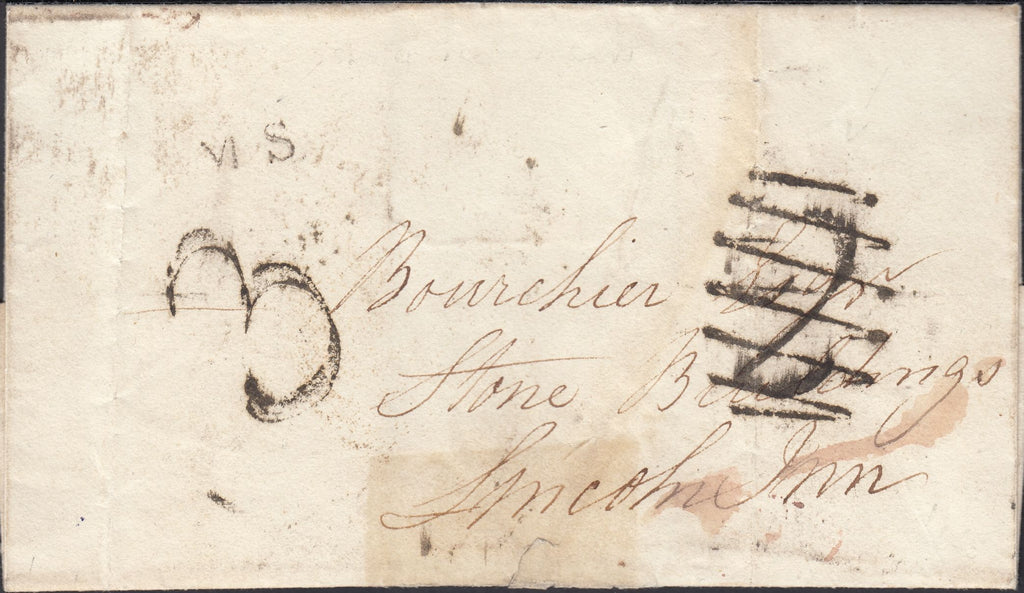 MS
3
2
Bourchier Esqr
Stone Buildings
Lyncoln Inn